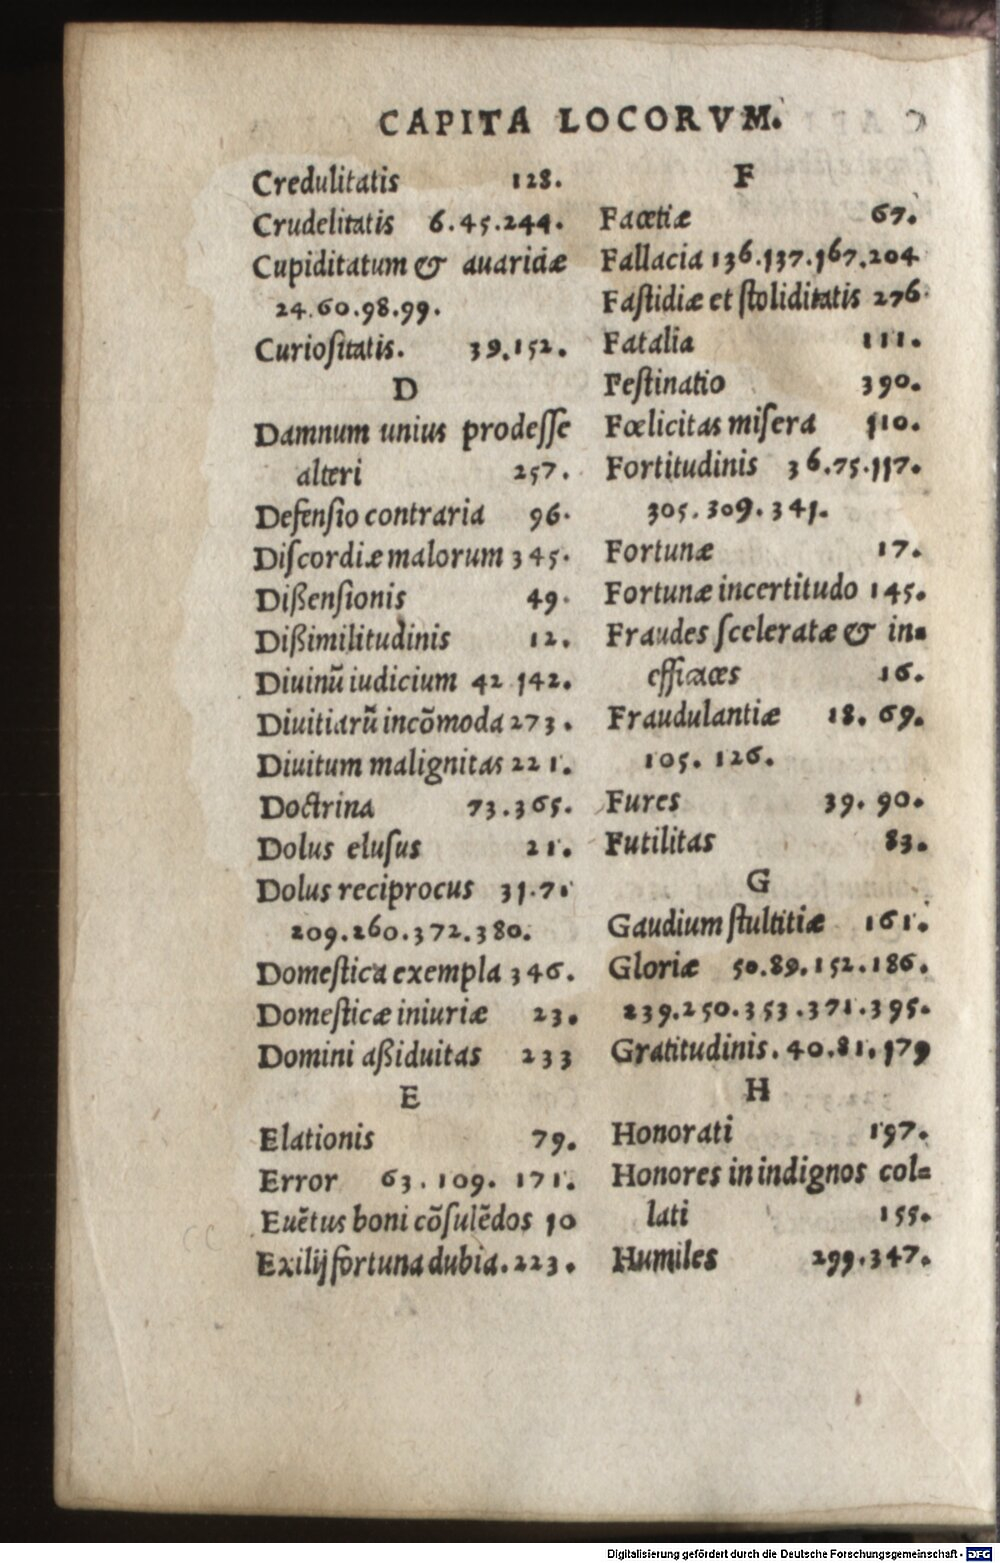 CAPITA LOCORVM.
Credulitatis 128.
Crudelitatis 6.45.244.
Cupiditatum & auaritiæ
24.60.98.99.
Curioſitatis. 39.152.
D
Damnum unius prodeſſe
alteri 257.
Defenſio contraria 96.
Diſcordiæ malorum 345.
Dißenſionis 49.
Dißimilitudinis 12.
Diuinũ iudicium 42 142.
Diuitiarũ incõmoda 273.
Diuitum malignitas 221.
Doctrina 73.365.
Dolus eluſus 21.
Dolus reciprocus 31.71
209.260.372.380.
Domeſtica exempla 346.
Domeſticæ iniuriæ 23.
Domini aßiduitas 233
E
Elationis 79.
Error 63.109. 171.
Euẽtus boni cõſulẽdos 10
Exilij fortuna dubia. 223.
F
Facetiæ 67.
Fallacia 136.137.167.204
Faſtidiæ et ſtoliditatis 276.
Fatalia 111.
Feſtinatio 390.
Fœlicitas miſera 110.
Fortitudinis 36.75.117.
305.309.341.
Fortunæ 17.
Fortunæ incertitudo 145.
Fraudes ſceleratæ & in=
efficaces 16.
Fraudulantiæ 18. 69.
105. 126.
Fures 39. 90.
Futilitas 83.
G
Gaudium ſtultitiæ 161.
Gloriæ 50.89.152.186.
239.250.353.371.395.
Gratitudinis. 40.81.179
H
Honorati 197.
Honores in indignos col=
lati 155.
Humiles 299.347.
Digitalisierung gefördert durch die Deutsche Forschungsgemeinschaft - DFG